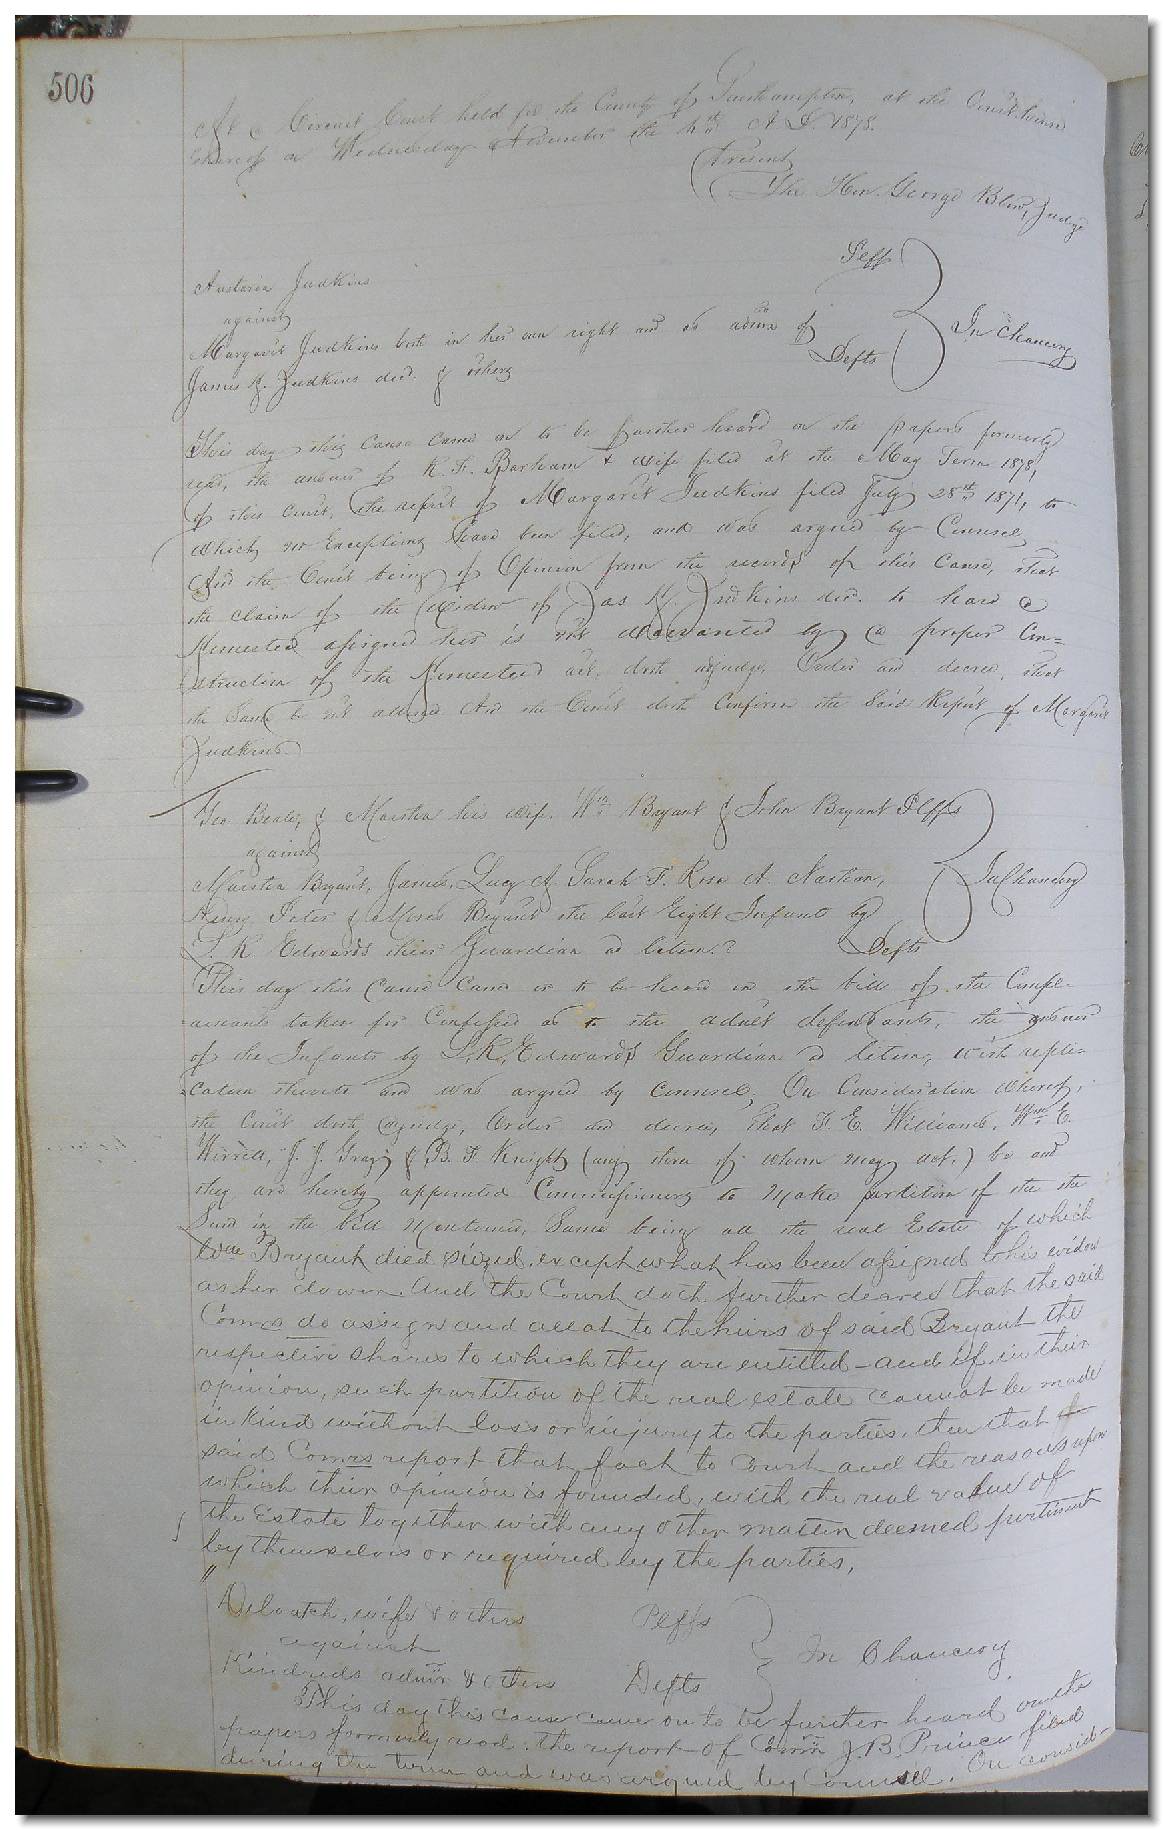 506
At a Circuit Court held for the County of Southampton, at the Courthouse
thereof on Wednesday November the 4th A.D. 1873.
Present
The Hon. George Blow, Judge
Plff
Judkins
against
Margaret Judkins both in her own right and as admx of
James H. Judkins decd. & others
Defts
In Chancery
This day this cause came on to be further heard on the papers formerly
read, the answer of R. F. Barham & wife filed at the May Term 187
of this Court, the report of Margaret Judkins filed July 28th 1871, to
which no Exceptions have been filed, and was argued by Counsel,
And the Court being of Opinion from the records of this Cause, that
the claim of the Widow of Jas H. Judkins decd. to have a
Homestead assigned her is not warranted by a proper Con=
struction of the Homestead act, doth adjudge, Order and decree, that
the Same be not allowed And the Court doth Confirm the Said Report of Margaret
Judkins
Geo Beale, & Martha his wife, Wm Bryant & John Bryant Plffs
against
Martha Bryant, James, Lucy A, Sarah F. Rosa A. Nathan,
Henry Peter & Moses Bryant the last Eight Infants by
L. R. Edwards their Guardian ad litem.
Defts
In Chancery
This day this Cause Came on to be heard on the bill of the Compl-
ainants taken for Confessed as to the adult defendants, the answer
of the Infants by L. R. Edwards Guardian ad litem, with repli-
cation thereto and was argued by Counsel, On Consideration whereof,
the Court doth, adjudge, Order and decree, that F. E. Williams, Wm. E.
Worrell, J. J. Gray & B. F. Knight (any three of whom may act,) be and
they are hereby appointed Commissioners to make partition of the the
land in the bill Mentioned, Same being all the real Estate of which
Wm Bryant died seized, except what has been assigned to his widow
as her dower. And the Court doth further decree that the said
Comrs do assign and allot to the heirs of said Bryant the
respective shares to which they are entitled - and if in their
opinion, such partition of the real estate cannot be made
in kind without loss or injury to the parties, then that
said Comrs report that fact to Court and the reasons upon
which their opinion is founded, with the real value of
the Estate together with any other matter deemed pertinent
by themselves or required by the parties,
Deloatch, wife & others Plffs
against
Kindreds admr & others Defts
In Chancery
This day this cause came on to be further heard on the
papers formerly read. the report of Comr J. B. Prince filed
during the term and was argued by Counsel. On consid-